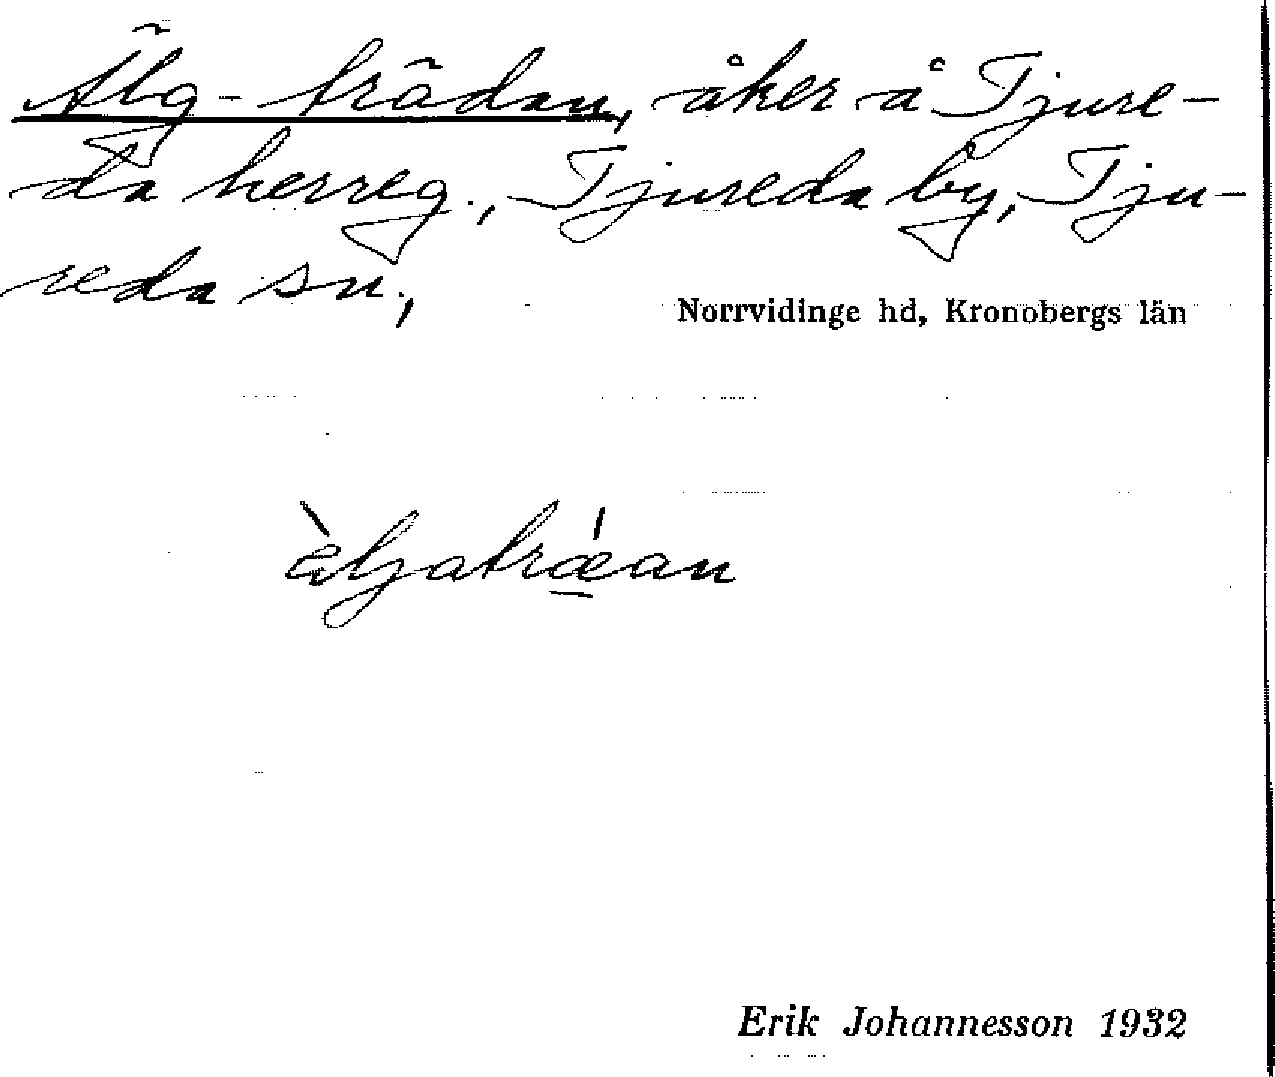 Älg-trädan, åker å Tjure-
da herreg., Tjureda by, Tju-
reda sn.,
Norrvidinge hd, Kronobergs län
àljatrǽ̲an
Erik Johannesson 1932